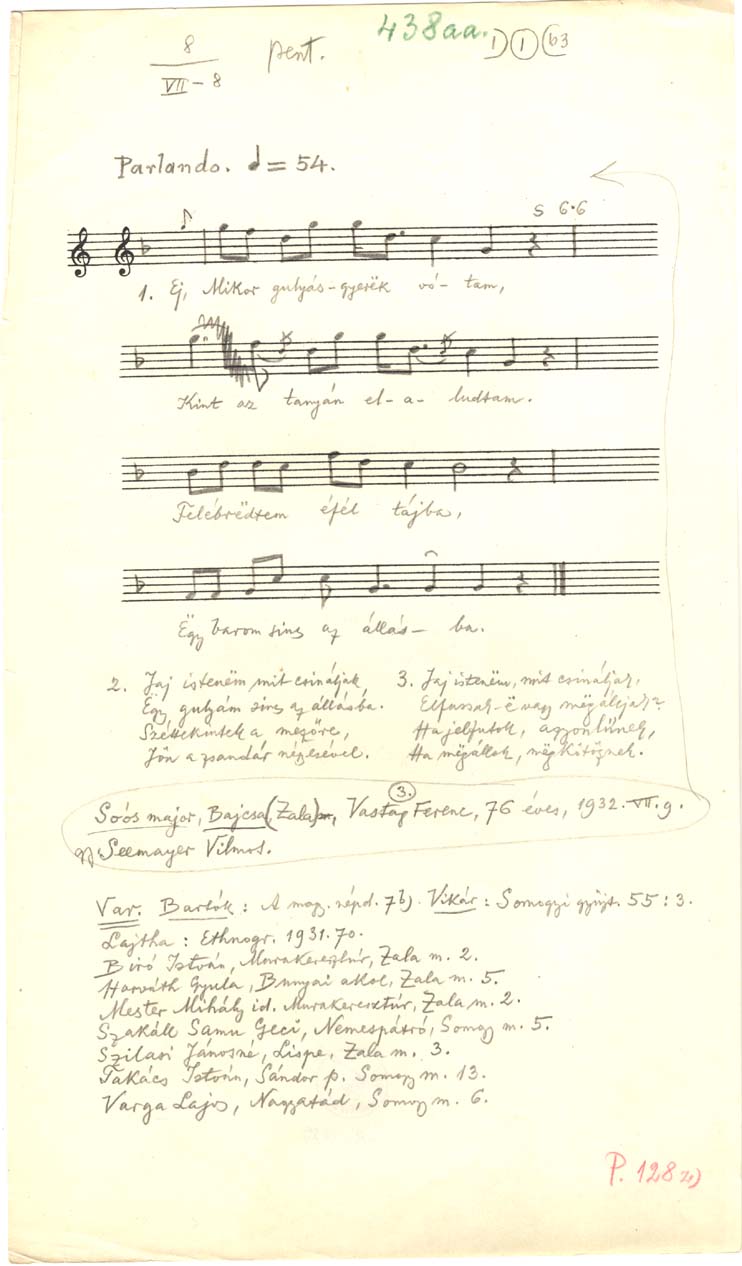 438aa. I) 1 b3
8
VII - 8
pent.
Parlando. = 54.
S 6·6
1. Ej, Mikor gulyás-gyerëk vó- tam,
Kint az tanyán el-a- ludtam.
Felébrëdtem éfél tájba,
Ëgy barom sincs az állás- ba.
2. Jaj istenëm mit csináljak
Ëgy gulyám sincs az állásba.
Széttekintek a mezőre,
Jön a zsandár nézésével.
3. Jaj istenëm, mit csináljak,
Elfussak-ë vagy mëgálljak?
Ha jelfutok, agyonlűnek,
Ha mëgállok, mëgkötöznek.
3.
Soós major, Bajcsa (Zala) Vastag Ferenc, 76 éves, 1932. VII. 9.
gy Seemayer Vilmos.
Var. Bartók: A magy. népd. 7b). Vikár: Somogyi gyűjt. 55:3.
Lajtha: Ethnogr. 1931. 70.
Biró István, Murakeresztúr, Zala m. 2.
Horváth Gyula, Bunyai akol, Zala m. 5.
Mester Mihály id. Murakeresztúr, Zala m. 2.
Szakáll Samu Geci, Nemespátró, Somogy m. 5.
Szilasi Jánosné, Lispe, Zala m. 3.
Takács István, Sándor p. Somogy m. 13.
Varga Lajos, Nagyatád, Somogy m. 6.
P. 128